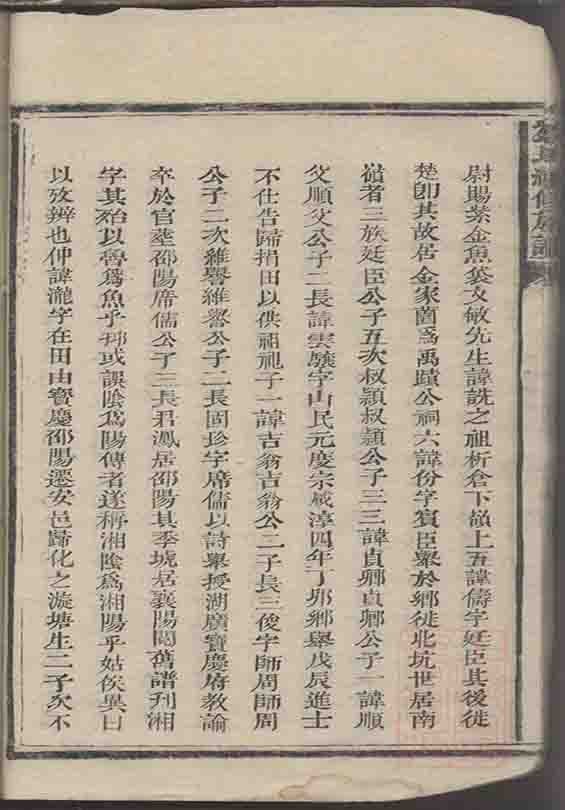 尉賜紫金魚袋文敏先生諱詵之祖析倉下嶺上五諱儔字廷臣其後徙
楚卽其故居金家菌爲禹蹟公祠六諱份字賓臣舉於鄉徙北坑世居南
嶺者三族廷臣公子五次叔頴叔頴公子三三諱貞卿貞卿公子一諱順
父順父公子二長諱雲驥字山民元慶宗咸淳四年丁卯鄉舉戊辰進士
不仕告歸捐田以供祖祀子一諱吉翁吉翁公二子長三俊字師周師周
公子二次維譽維譽公子二長國珍字席儒以詩舉授湖廣寶慶府敎諭
卒於官塟邵陽席儒公子三長君鳳居邵陽其季琥居襄陽閱舊譜刊湘
字其殆以魯爲魚乎抑或誤陰爲陽傳者遂稱湘陰爲湘陽乎姑俟異日
以攷辨也仲諱瀧字在田由寶慶邵陽遷安邑歸化之漩塘生二子次不